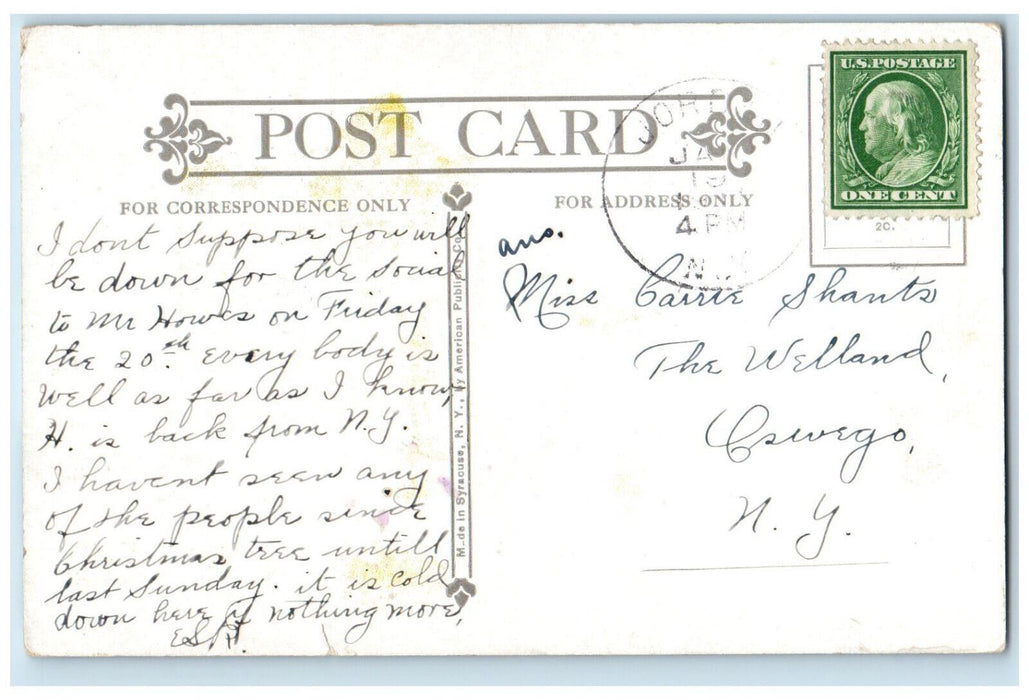 U.S. POSTAGE
ONE CENT
2C.
POST CARD
JA
19
4 PM
N.Y.
FOR CORRESPONDENCE ONLY
FOR ADDRESS ONLY
I dont suppose you will
be down for the social
to Mr Howes on Friday
the 20th. every body is
well as far as I know,
H. is back from N.Y.
I havent seen any
of the people since
Christmas tree untill
last Sunday. it is cold
down here if nothing more,
Made in Syracuse, N. Y., by American Publish Co.
ans.
Miss Carrie Shants
The Welland,
Oswego,
N. Y.